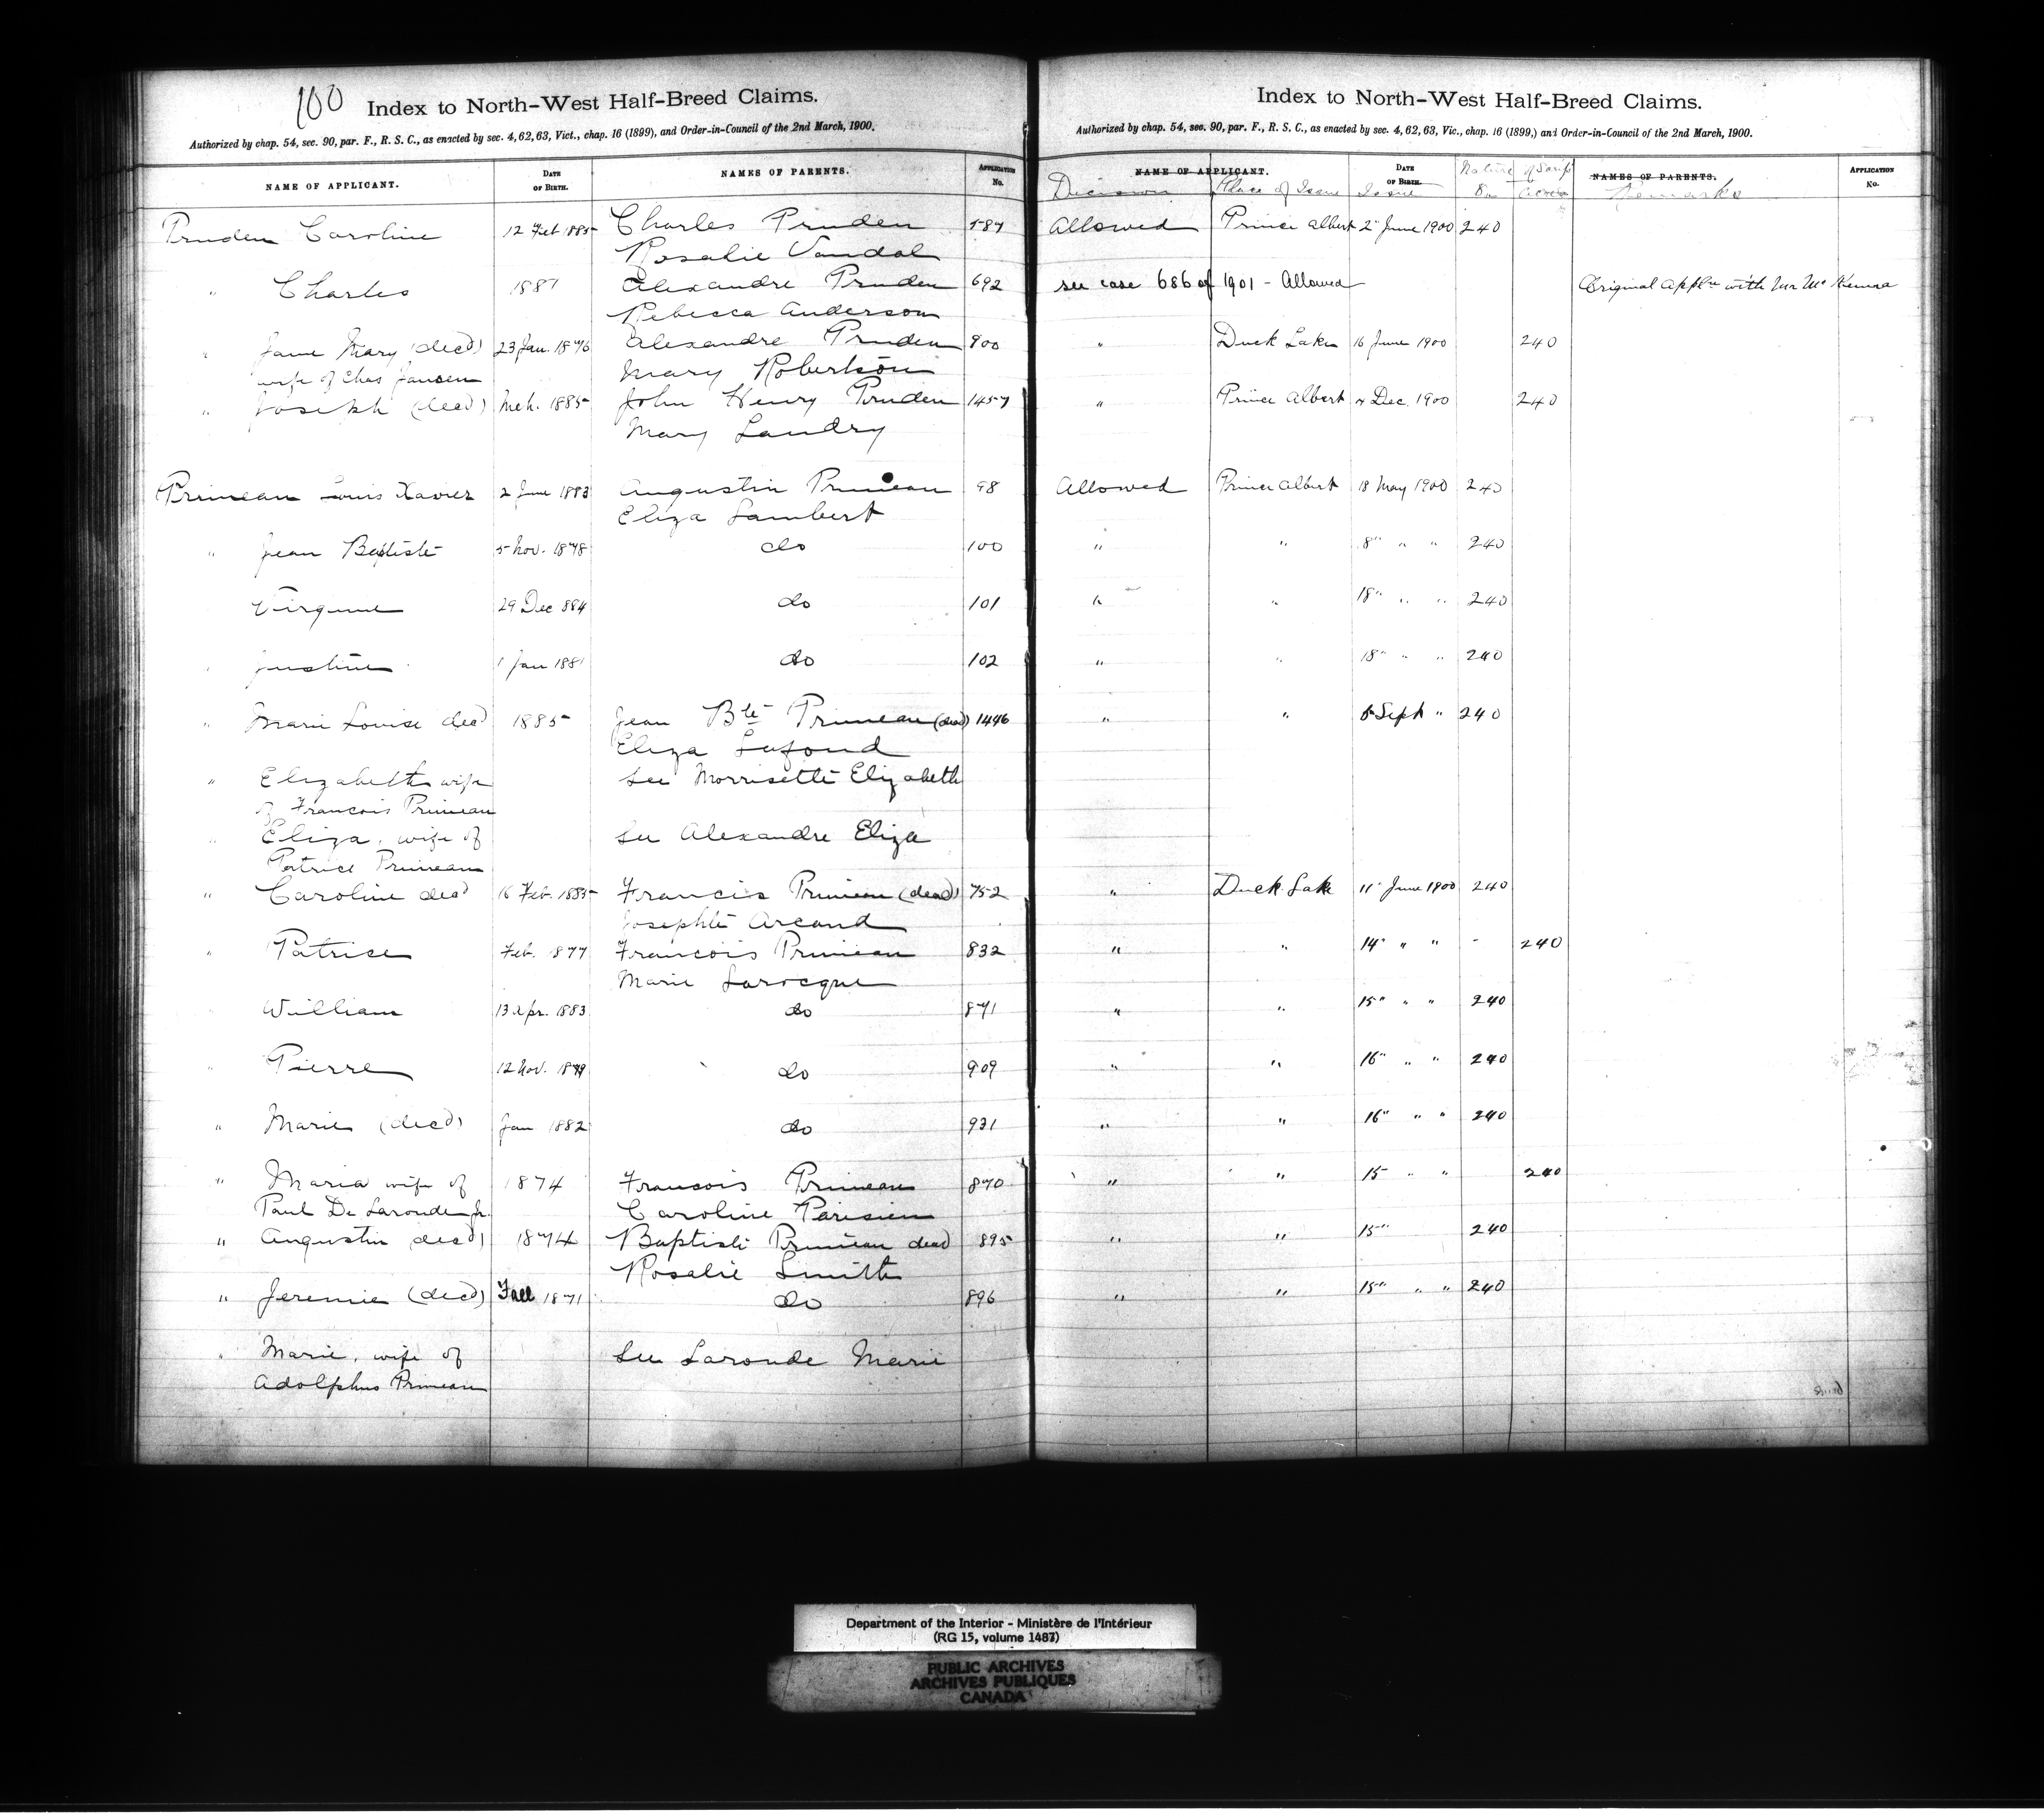 100
Index to North-West Half-Breed Claims.
Authorized by chap. 54, sec. 90, par. F., R. S. C., as enacted by sec. 4, 62, 63, Vict., chap. 16 (1899), and Order-in-Council of the 2nd March, 1900.
NAME OF APPLICANT. DATE OF BIRTH. NAMES OF PARENTS. APPLICATION No.
Pruden Caroline 12 Feb 1885 Charles Pruden 587
Rosalie Vandal
" Charles 1887 Alexandre Pruden 692
Rebecca Anderson
" Jane Mary (decd) 23 Jan. 1876 Alexandre Pruden 900
wife of Chas Jansen Mary Robertson
" Joseph (dead) Mch. 1885 John Henry Pruden 1457
Mary Landry
Primeau Louis Xavier 2 June 1883 Augustin Primeau 98
Eliza Lambert
" Jean Baptiste 5 Nov. 1878 do 100
Virginie 29 Dec 884 do 101
" Justine 1 Jan 1881 do 102
" Marie Louise dead 1885 Jean Bte Primeau (dead) 1446
Eliza Lafond
" Elizabeth wife See Morrisette Elizabeth
of Francois Primeau
" Eliza, wife of See Alexandre Eliza
Patrice Primeau
" Caroline dead 16 Feb. 1885 Francis Primeau (dead) 752
Josephte Arcand
" Patrice Feb. 1877 Francois Primeau 832
Marie Larocque
" William 13 Apr. 1883 do 871
" Pierre 12 Nov. 1879 do 909
" Marie (decd) Jan 1882 do 931
" Maria wife of 1874 Francois Primeau 870
Paul De Laronde Jr. Caroline Parisien
" Augustin (decd) 1874 Baptiste Primeau dead 895
Rosalie Smith
" Jeremie (decd) Fall 1871 do 896
" Marie, wife of See Laronde Marie
Adolphus Primeau
Index to North-West Half-Breed Claims.
Authorized by chap. 54, sec. 90, par. F., R. S. C., as enacted by sec. 4, 62, 63, Vic., chap. 16 (1899,) and Order-in-Council of the 2nd March, 1900.
NAME OF APPLICANT. DATE OF BIRTH. Nature of Scrip NAMES OF PARENTS. APPLICATION No.
Decision Place of Issue Issue $ Acres Remarks
Allowed Prince Albert 2" June 1900 240
see case 686 of 1901 - Allowed Original Appln with Mr McKenna
" Duck Lake 16 June 1900 240
" Prince Albert 4 Dec. 1900 240
Allowed Prince Albert 18 May 1900 240
" " 8" " " 240
" " 18" " " 240
" " 18" " " 240
" " 6 Sept " 240
" Duck Lake 11" June 1900 240
" " 14" " " 240
" " 15" " " 240
" " 16" " " 240
" " 16" " " 240
" " 15 " " 240
" " 15" 240
" " 15" " " 240
Department of the Interior - Ministère de l'Intérieur
(RG 15, volume 1487)
PUBLIC ARCHIVES
ARCHIVES PUBLIQUES
CANADA